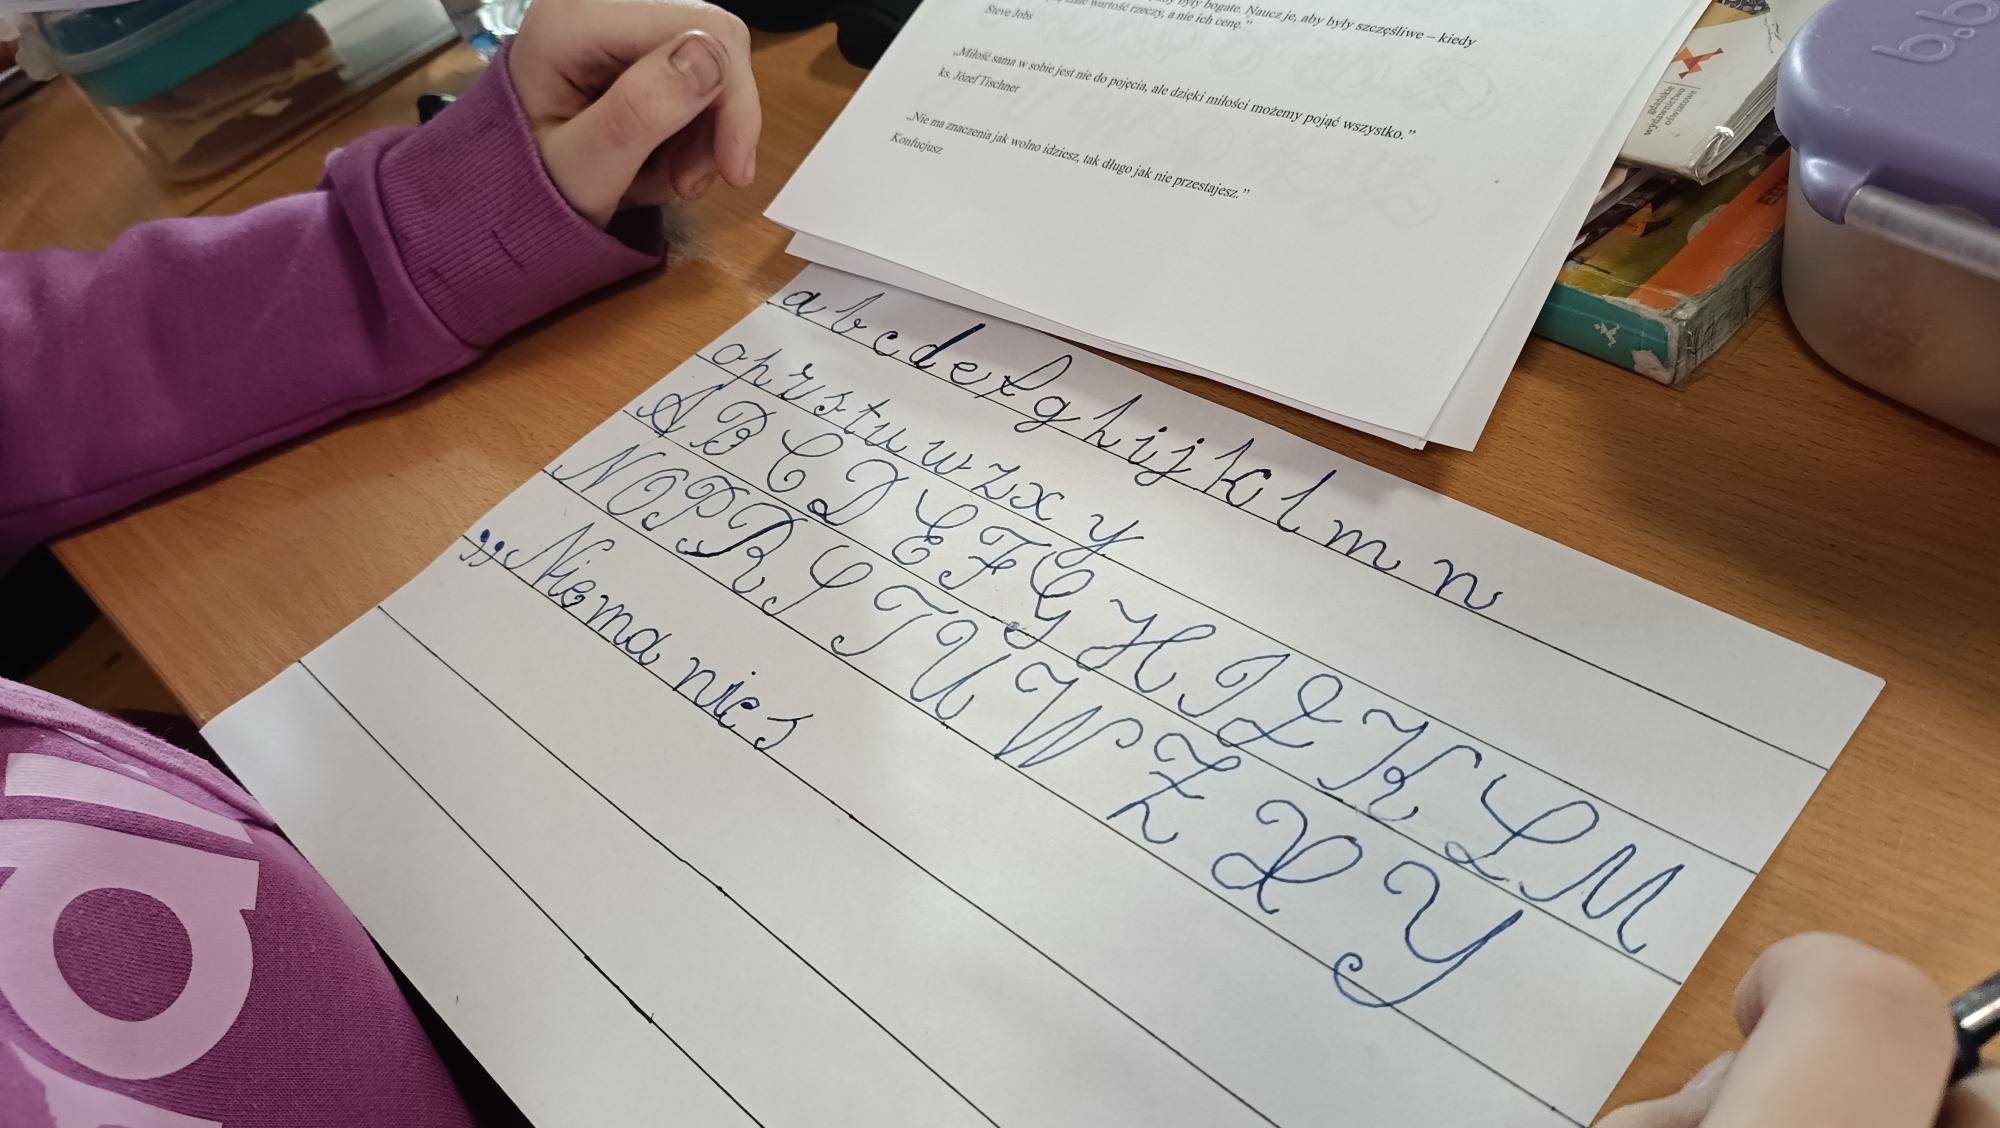 były bogate. Naucz je, aby były szczęśliwe – kiedy
wartość rzeczy, a nie ich cenę.”
Steve Jobs
„Miłość sama w sobie jest nie do pojęcia, ale dzięki miłości możemy pojąć wszystko.”
ks. Józef Tischner
„Nie ma znaczenia jak wolno idziesz, tak długo jak nie przestajesz.”
Konfucjusz
gdańskie
wydawnictwo
oświatowe
b.b
a b c d e f g h i j k l m n
o p r s t u w z x y
A B C D E F G H I J K L M
N O P R S T U W Z X Y
„Nie ma nic s